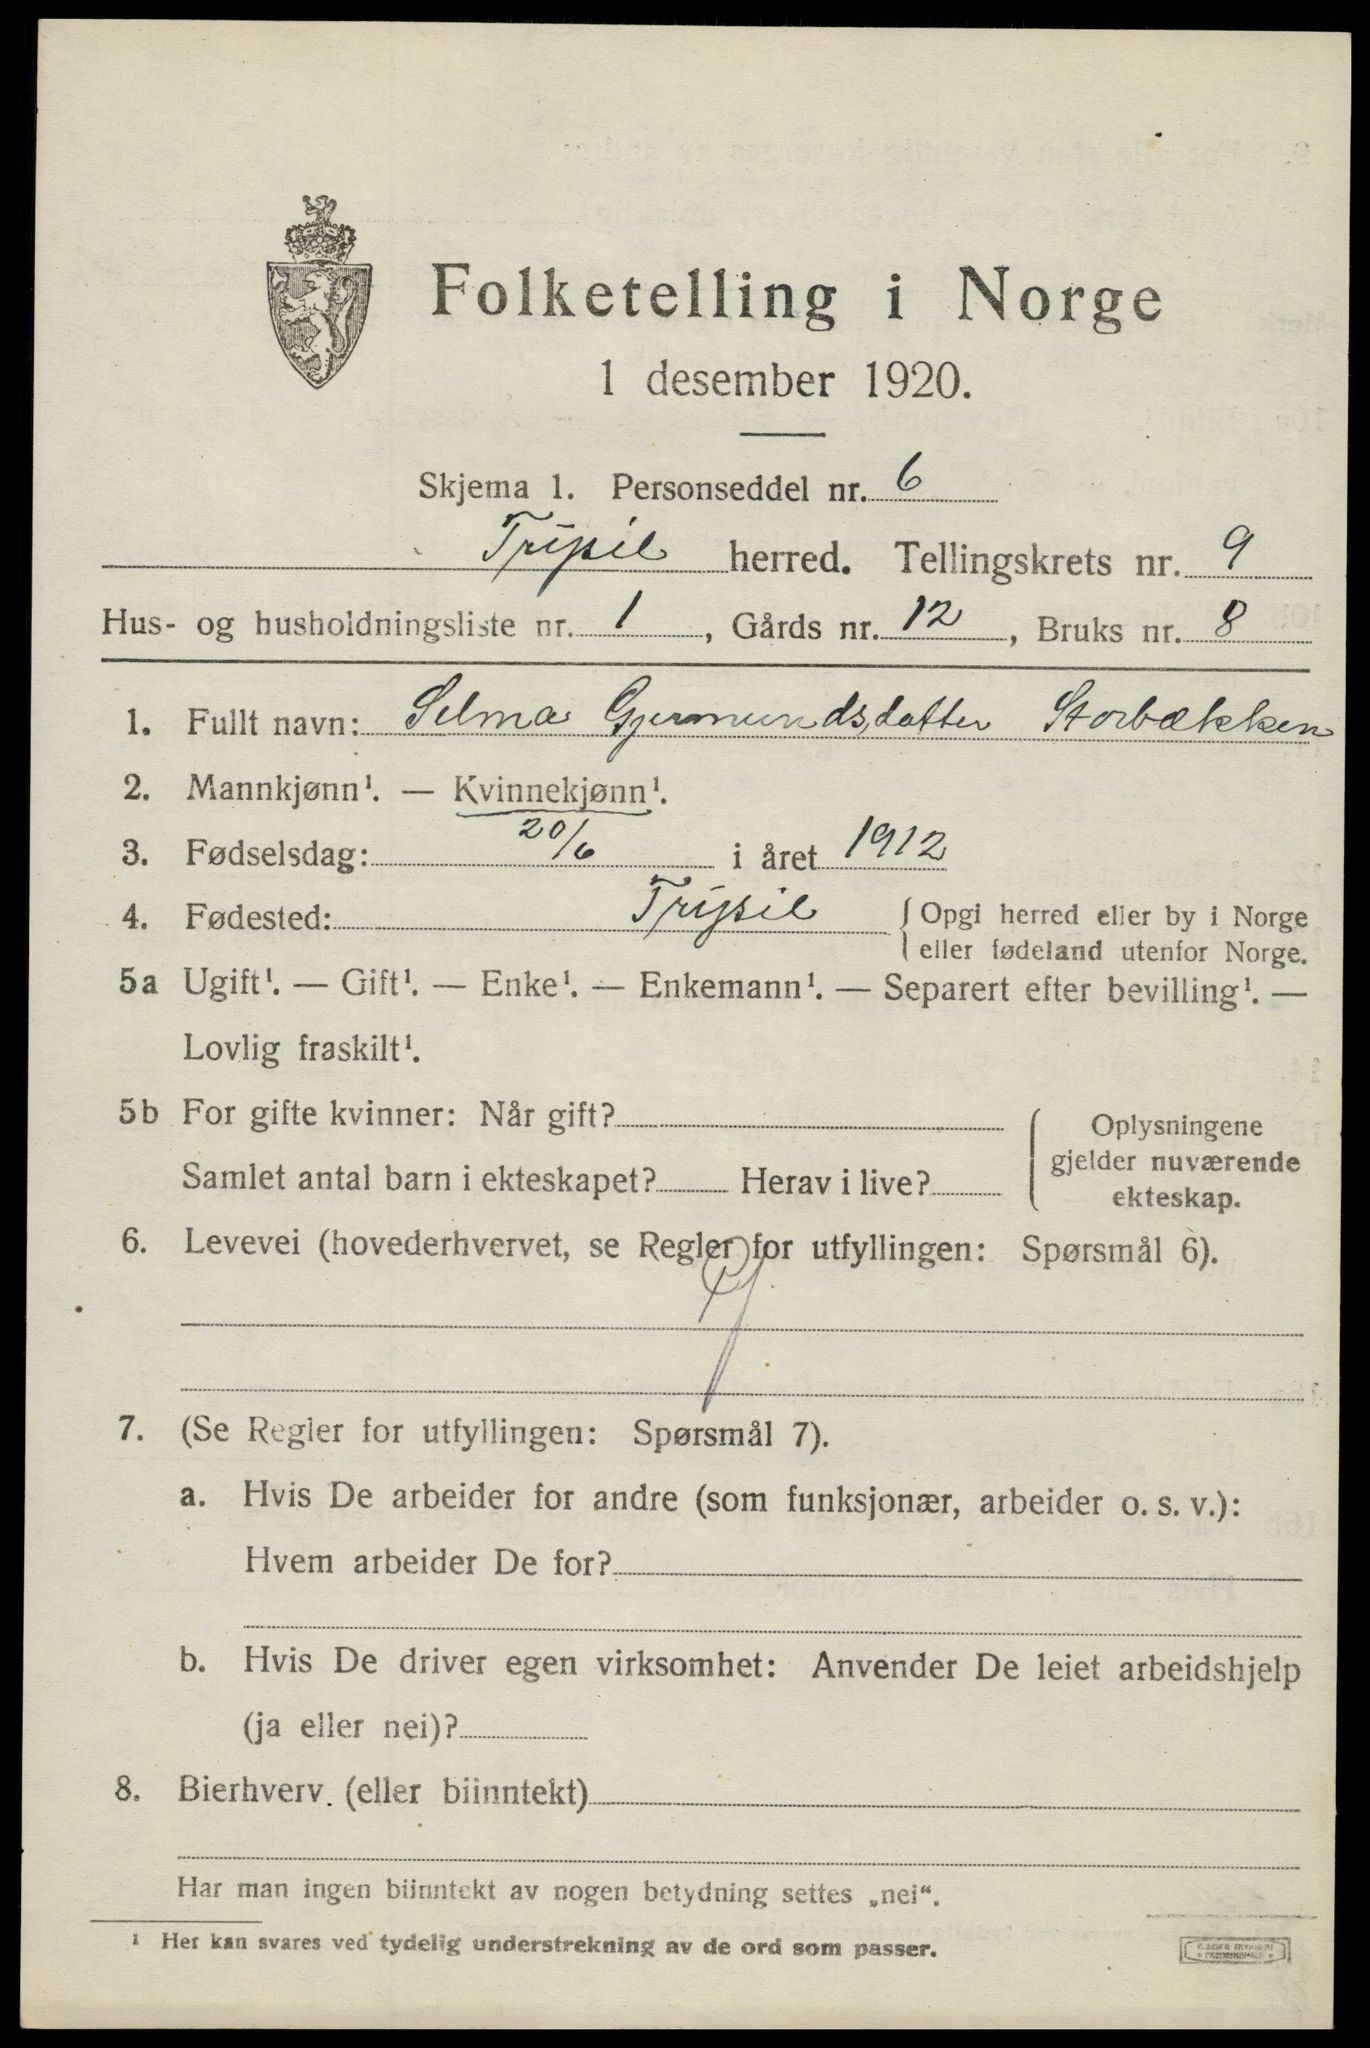 Folketelling i Norge
1 desember 1920.
Skjema 1. Personseddel nr. 6
Trysil herred. Tellingskrets nr. 9
Hus- og husholdningsliste nr. 1, Gårds nr. 12, Bruks nr. 8
1. Fullt navn: Selma Gjermundsdatter Storbækken
2. Mannkjønn¹. — Kvinnekjønn¹.
3. Fødselsdag: 20/6 i året 1912
4. Fødested: Trysil { Opgi herred eller by i Norge
eller fødeland utenfor Norge.
5a Ugift¹. — Gift¹. — Enke¹. — Enkemann¹. — Separert efter bevilling¹. —
Lovlig fraskilt¹.
5b For gifte kvinner: Når gift?
Samlet antal barn i ekteskapet? Herav i live?
Oplysningene
gjelder nuværende
ekteskap.
6. Levevei (hovederhvervet, se Regler for utfyllingen: Spørsmål 6).
7. (Se Regler for utfyllingen: Spørsmål 7).
a. Hvis De arbeider for andre (som funksjonær, arbeider o. s. v.):
Hvem arbeider De for?
b. Hvis De driver egen virksomhet: Anvender De leiet arbeidshjelp
(ja eller nei)?
8. Bierhverv. (eller biinntekt)
Har man ingen biinntekt av nogen betydning settes „nei“.
¹ Her kan svares ved tydelig understrekning av de ord som passer.